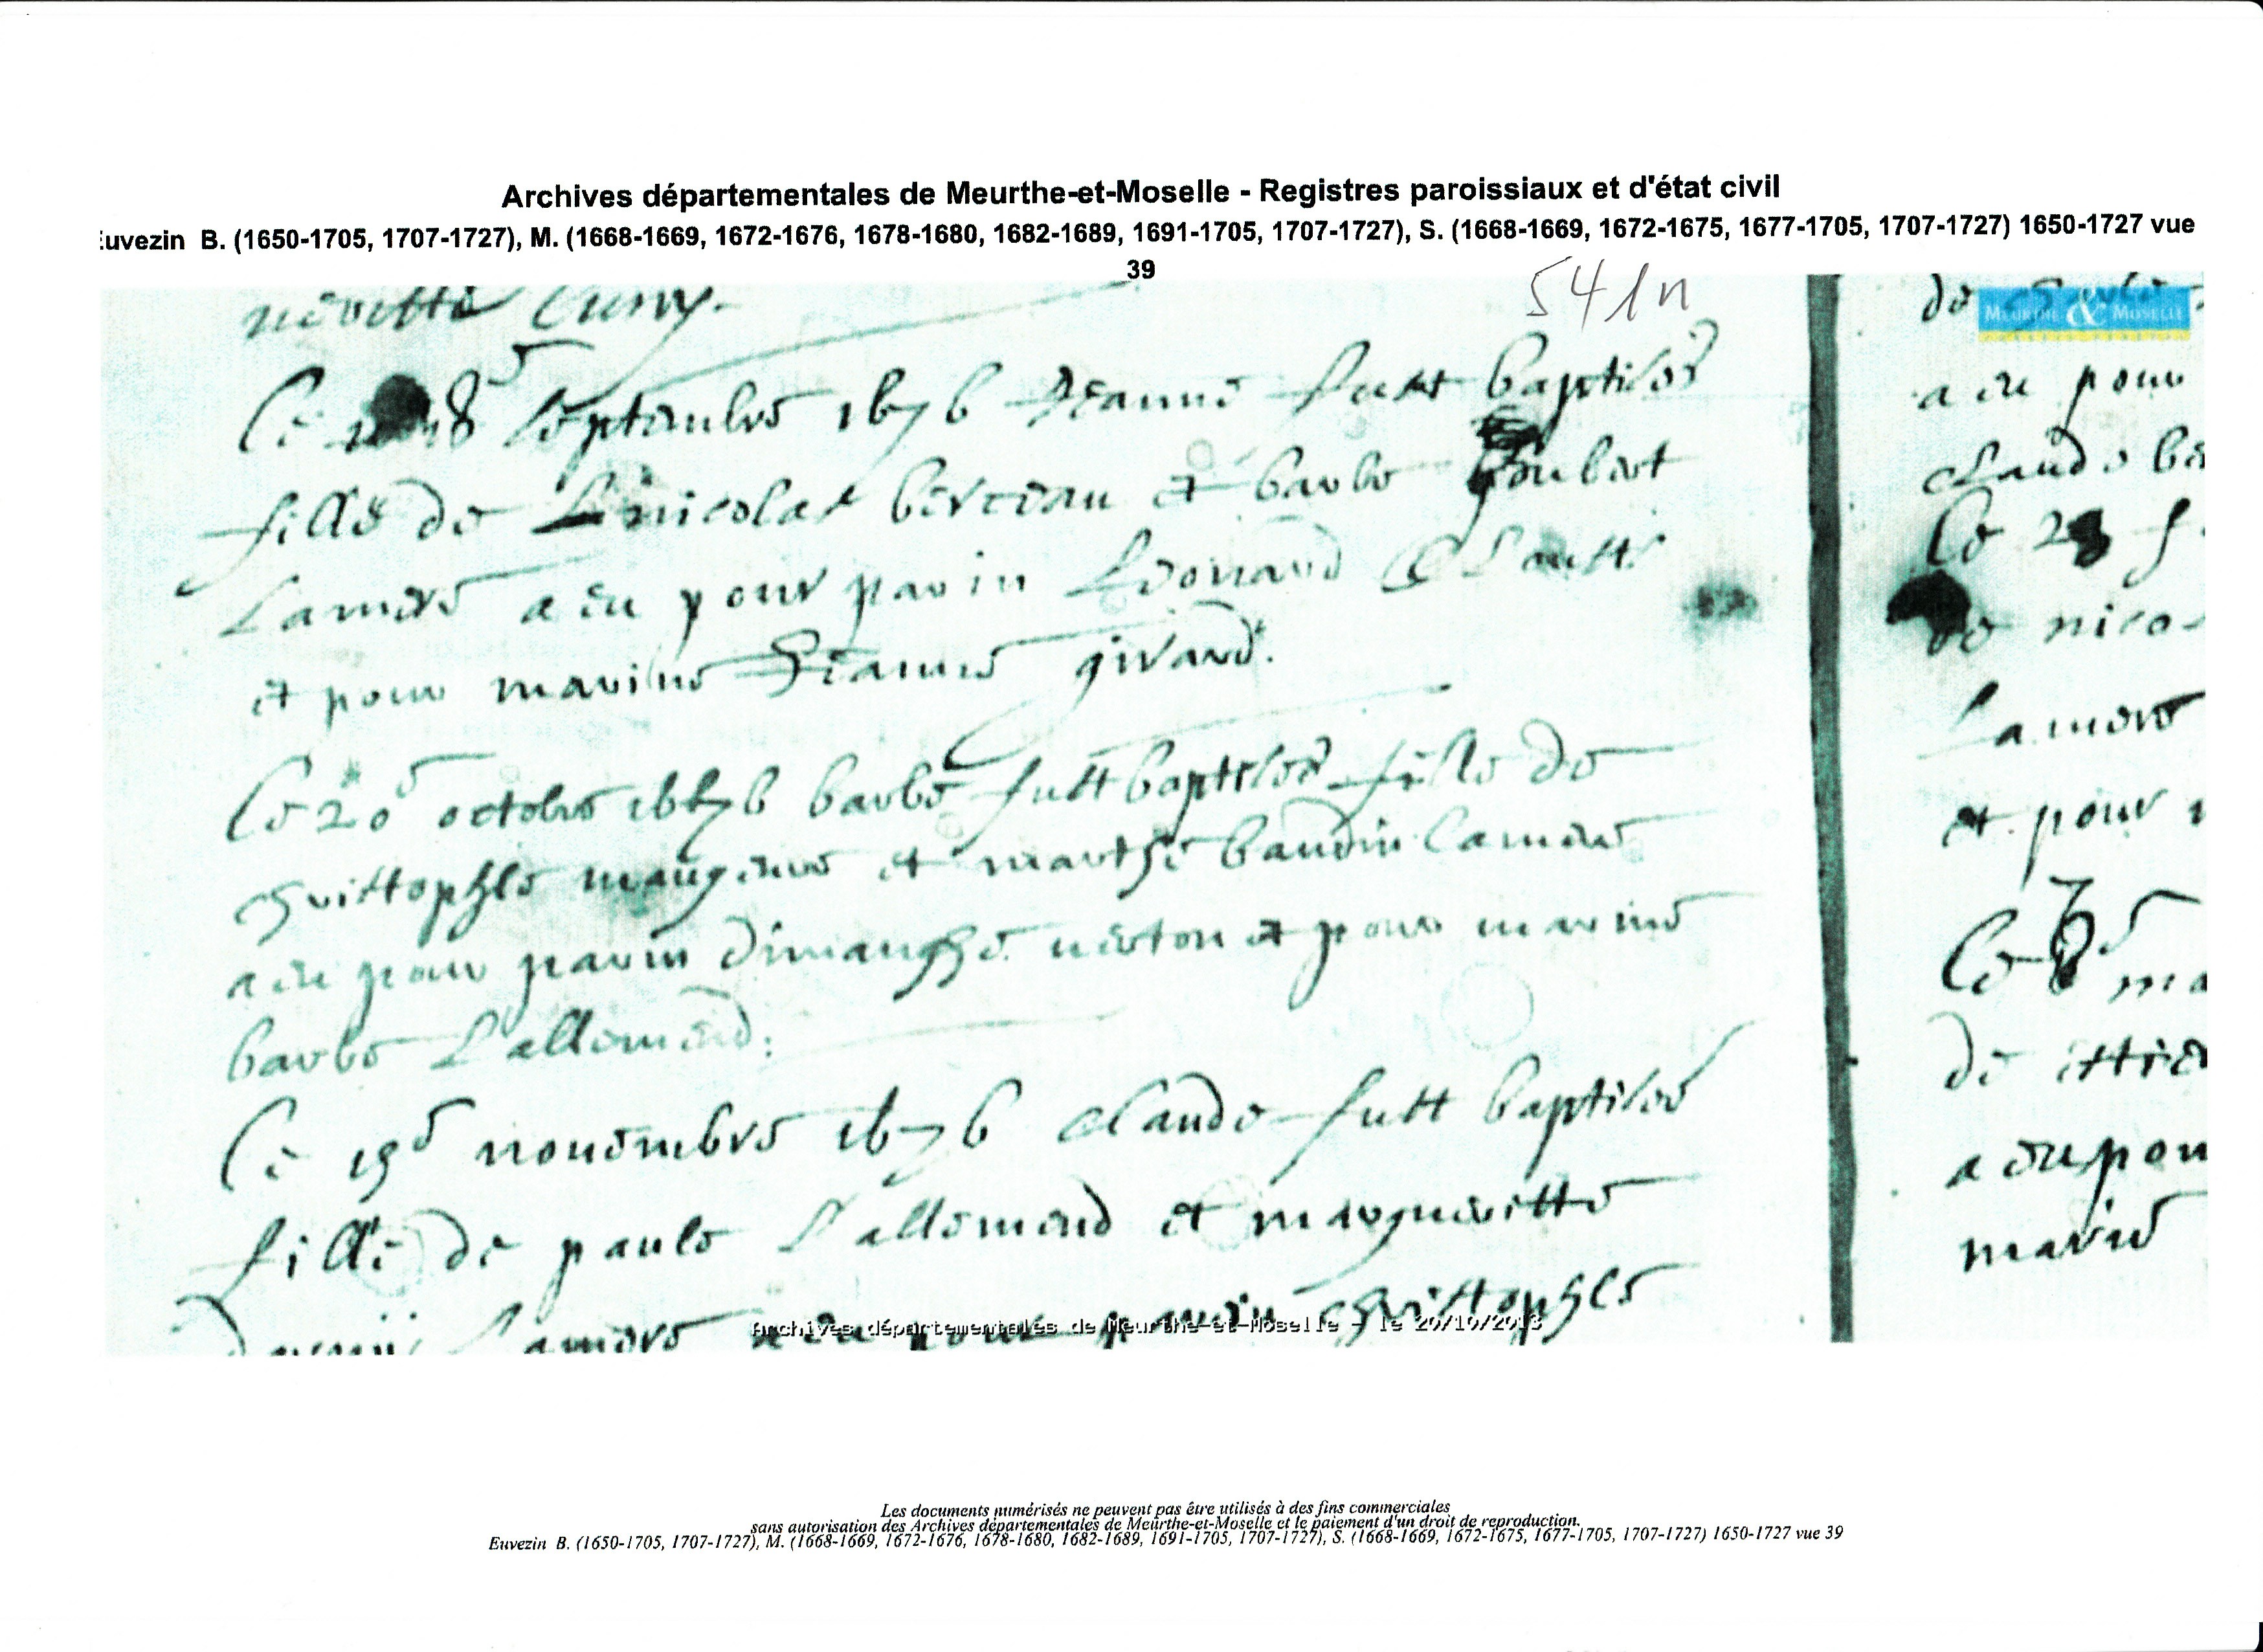 Archives départementales de Meurthe-et-Moselle - Registres paroissiaux et d'état civil
uvezin B. (1650-1705, 1707-1727), M. (1668-1669, 1672-1676, 1678-1680, 1682-1689, 1691-1705, 1707-1727), S. (1668-1669, 1672-1675, 1677-1705, 1707-1727) 1650-1727 vue
39
541n
Cuny.
Le 18e septembre 1676 Jeanne futt baptisée
fille de nicolas berteau et barbe
la mere a eu pour parin
et pour marine Jeanne girard.
Le 20e octobre 1676 barbe futt baptisée fille de
et marthe baudin la mere
a eu pour parin dimanche et pour marine
barbe Lallemend.
Le 19e nouembre 1676 claude futt baptisée
fille de paule Lallemend et margueritte
la mere a eu pour parin
de
a eu pour
claude
Le 28
de nico
la mere
et pour
Le
de
a eu pou
marin
MEURTHE & MOSELLE
Archives départementales de Meurthe-et-Moselle - le 20/10/2013
Les documents numérisés ne peuvent pas être utilisés à des fins commerciales
sans autorisation des Archives départementales de Meurthe-et-Moselle et le paiement d'un droit de reproduction.
Euvezin B. (1650-1705, 1707-1727), M. (1668-1669, 1672-1676, 1678-1680, 1682-1689, 1691-1705, 1707-1727), S. (1668-1669, 1672-1675, 1677-1705, 1707-1727) 1650-1727 vue 39